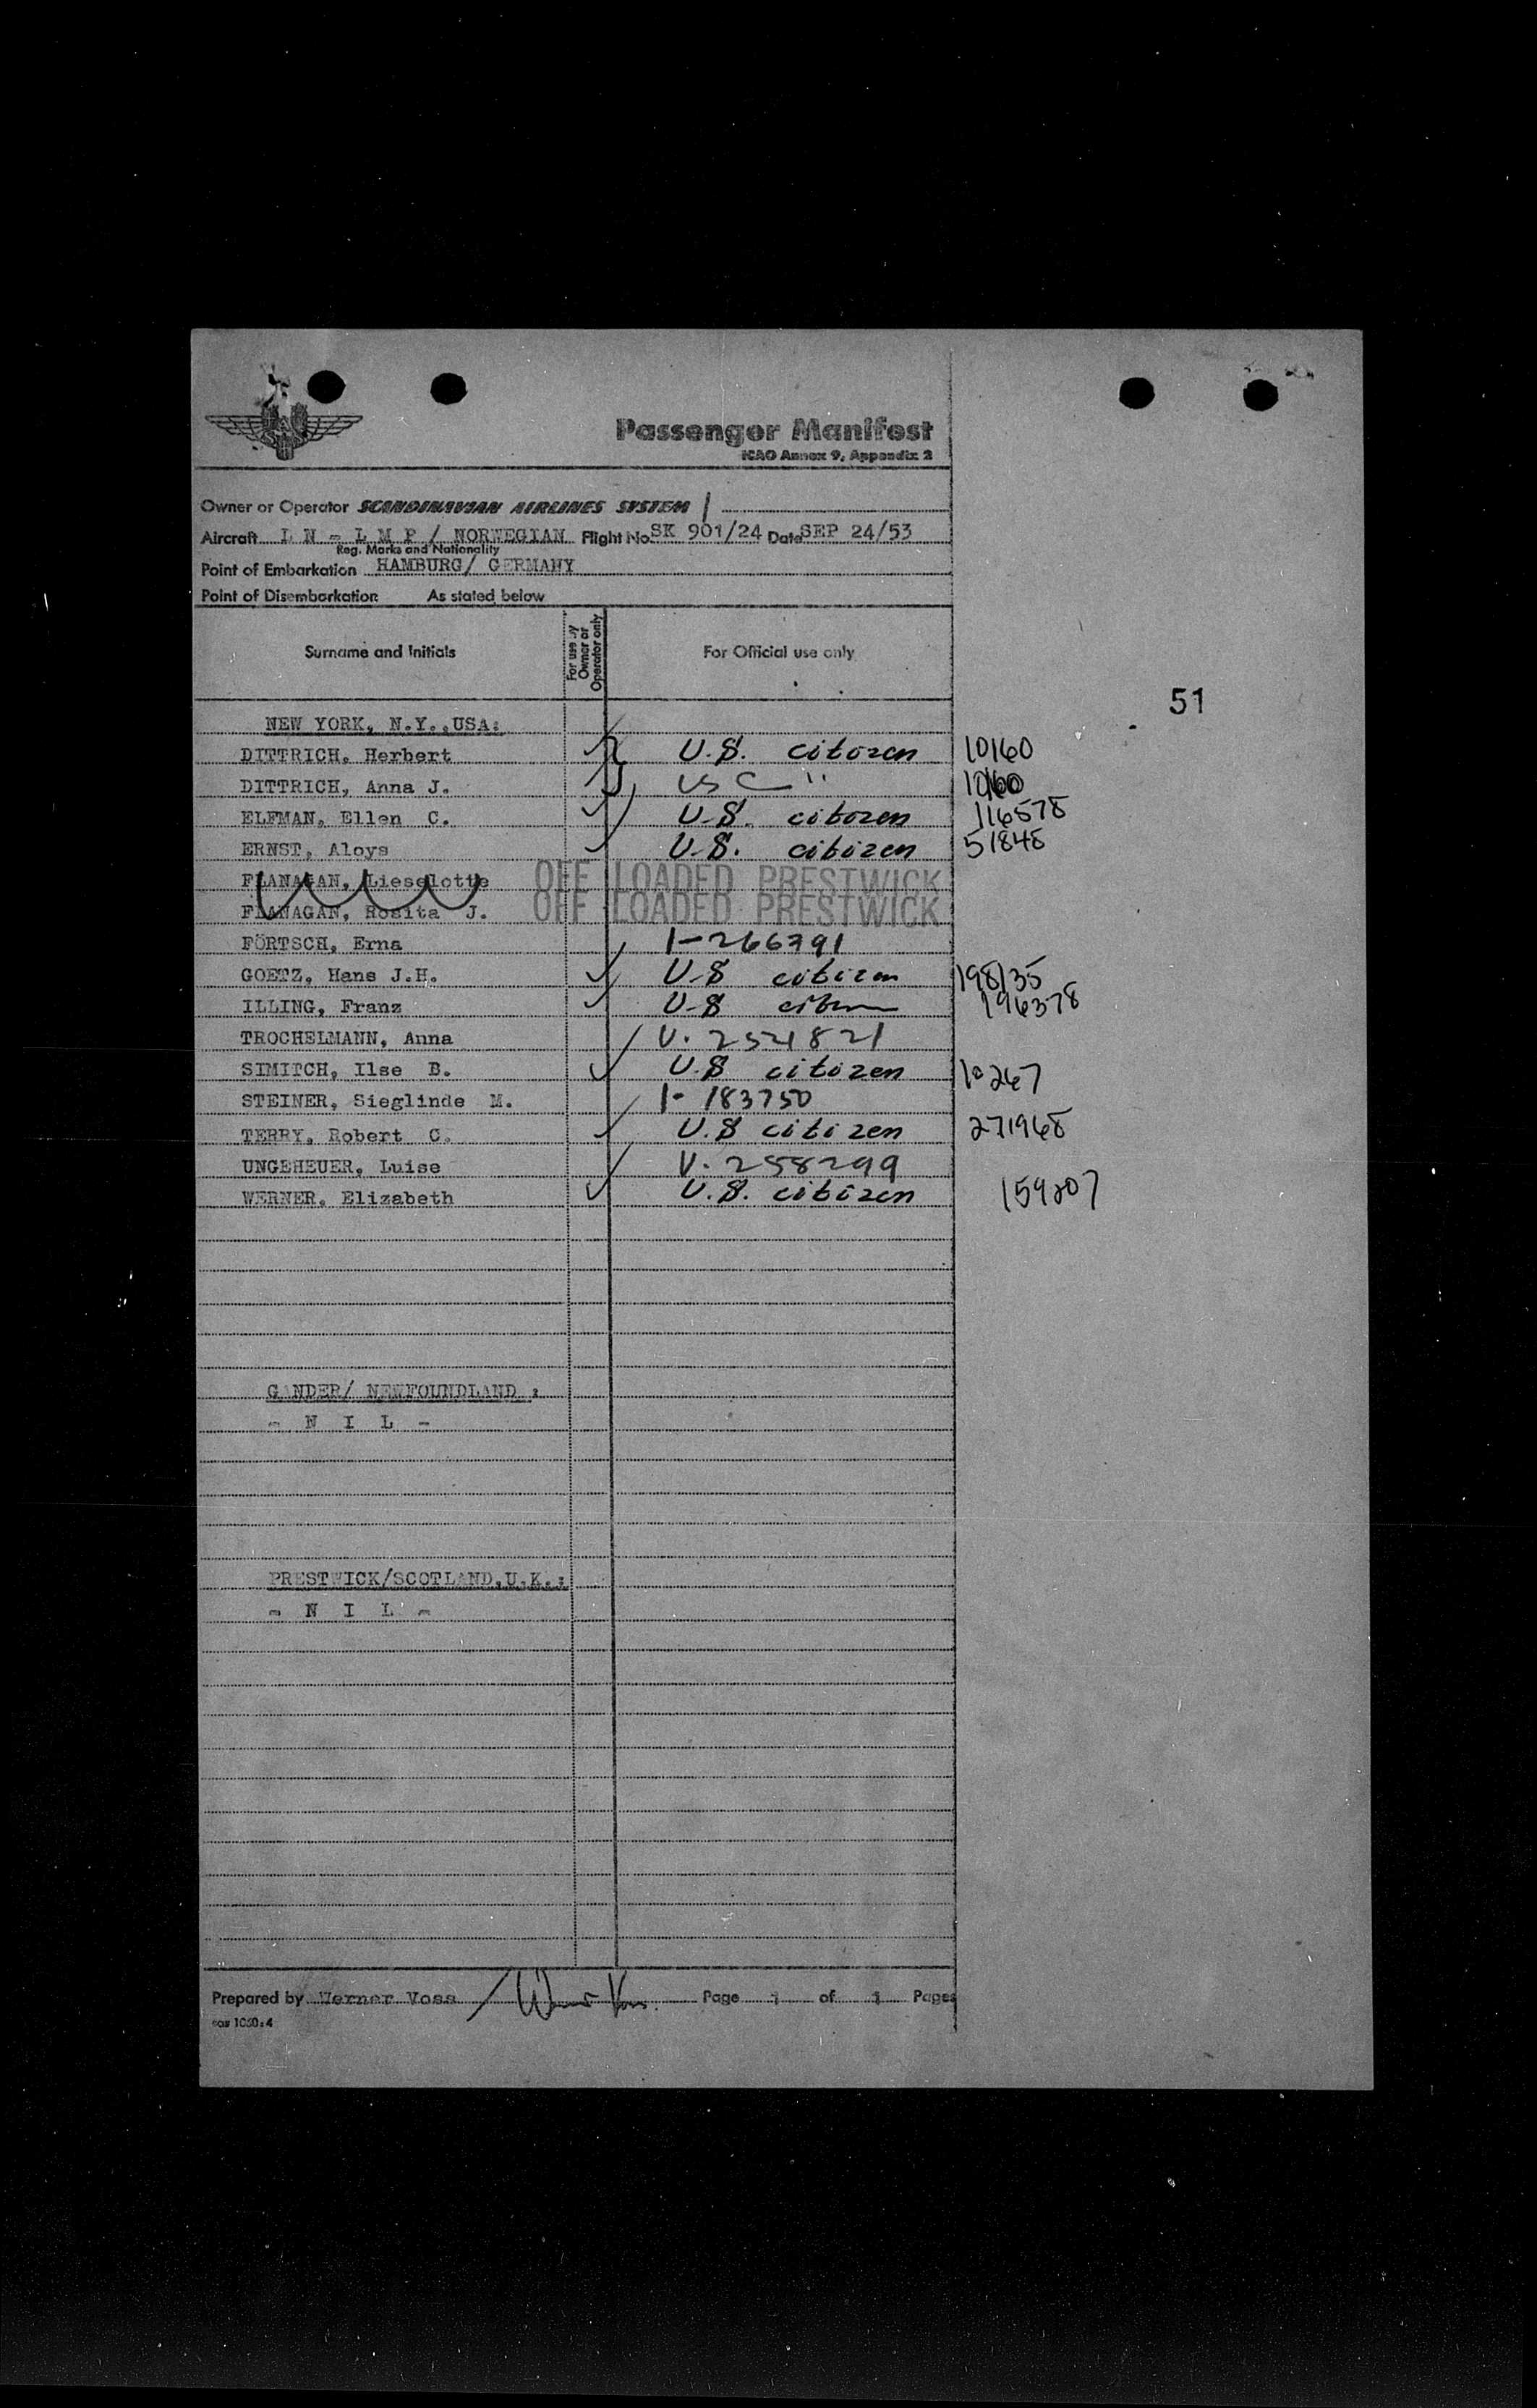 Passenger Manifest
ICAO Annex 9, Appendix 2
Owner or Operator SCANDINAVIAN AIRLINES SYSTEM
Aircraft L N - L M P / NORWEGIAN Flight No. SK 901/24 Date SEP 24/53
Reg. Marks and Nationality
Point of Embarkation HAMBURG/ GERMANY
Point of Disembarkation As stated below
Surname and Initials For use by Owner or Operator only For Official use only
51
NEW YORK, N.Y.,USA:
DITTRICH, Herbert U.S. citizen 10160
DITTRICH, Anna J. USC " 10160
ELFMAN, Ellen C. U.S. citizen 116578
ERNST, Aloys U.S. citizen 51848
FLANAGAN, Lieselotte OFF LOADED PRESTWICK
FLANAGAN, Rosita J. OFF LOADED PRESTWICK
FÖRTSCH, Erna 1-266791
GOETZ, Hans J.H. U.S citizen 198135
ILLING, Franz U.S citizen 196378
TROCHELMANN, Anna V. 2521821
SIMITCH, Ilse B. U.S citizen 10267
STEINER, Sieglinde M. 1- 183750
TERRY, Robert C. U.S citizen 271968
UNGEHEUER, Luise V. 258299
WERNER, Elizabeth U.S. citizen 159207
GANDER/ NEWFOUNDLAND :
- N I L -
PRESTWICK/SCOTLAND,U.K.:
- N I L -
Prepared by Werner Voss / Werner Voss. Page 1 of 1 Pages
sas 1030:4